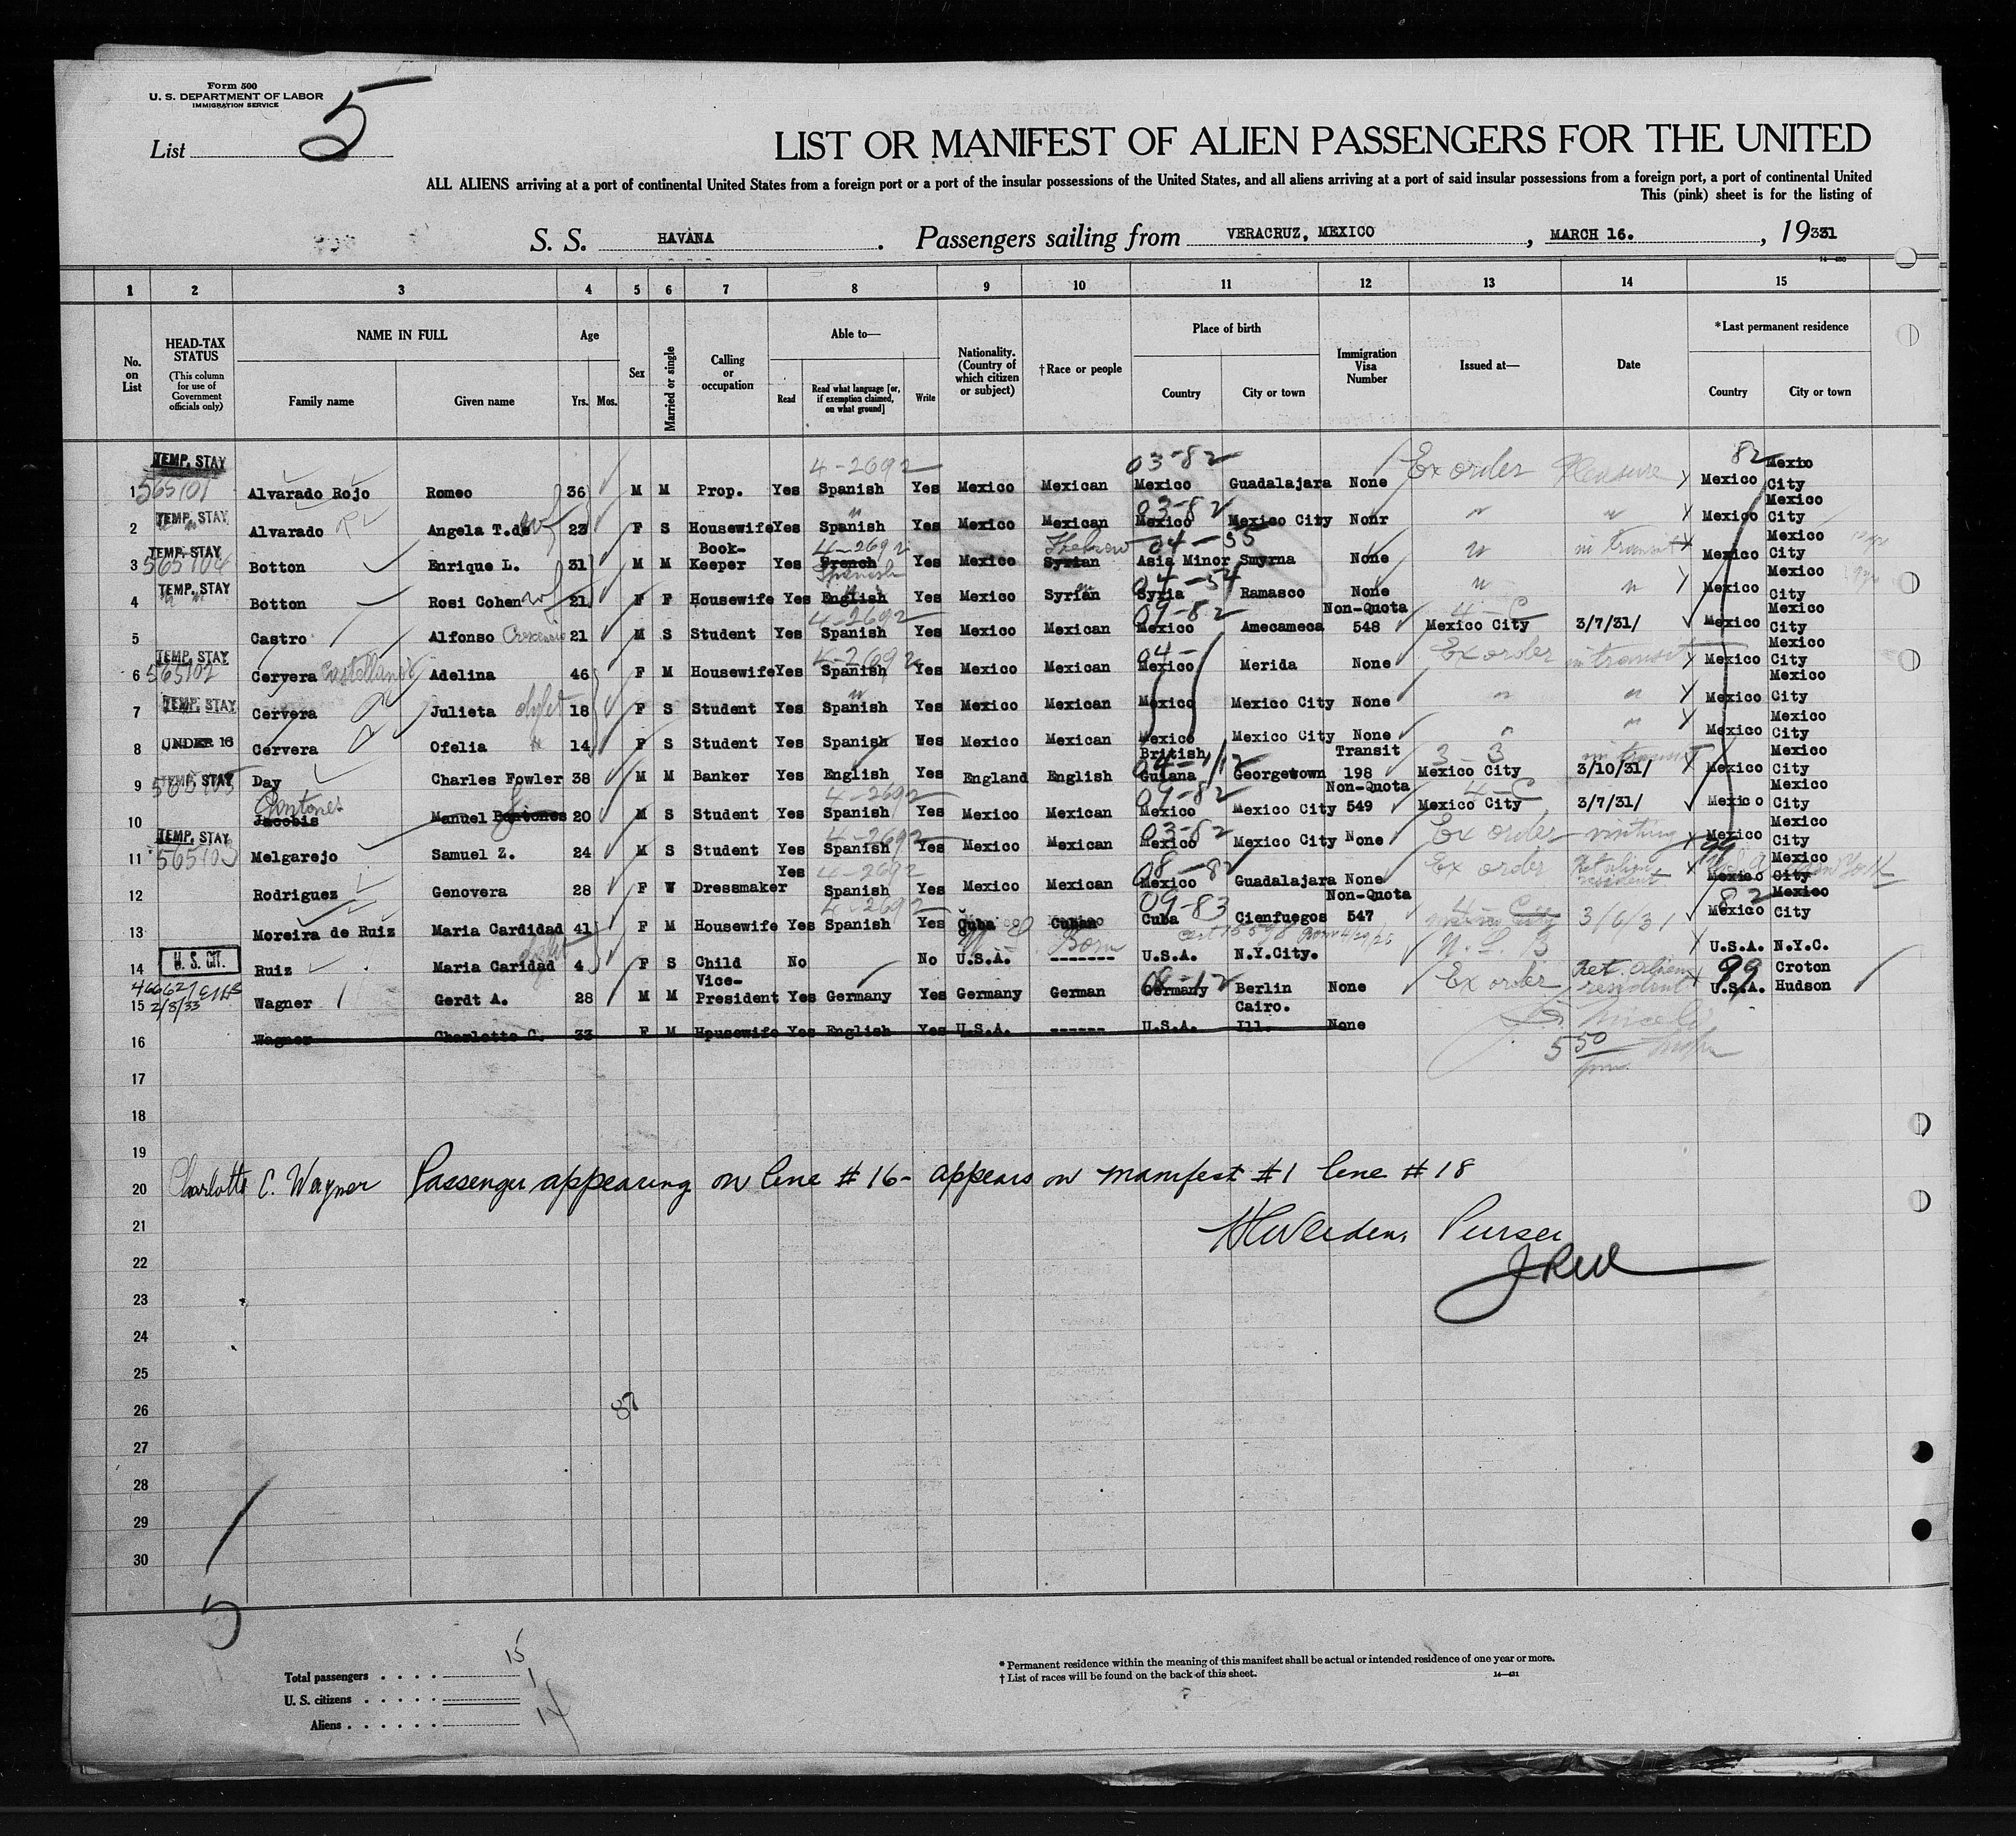 Form 500
U. S. DEPARTMENT OF LABOR
IMMIGRATION SERVICE
List 5
LIST OR MANIFEST OF ALIEN PASSENGERS FOR THE UNITED
ALL ALIENS arriving at a port of continental United States from a foreign port or a port of the insular possessions of the United States, and all aliens arriving at a port of said insular possessions from a foreign port, a port of continental United
This (pink) sheet is for the listing of
S. S. HAVANA . Passengers sailing from VERACRUZ, MEXICO , MARCH 16. , 1931
1 2 3 4 5 6 7 8 9 10 11 12 13 14 15
No. on List
HEAD-TAX STATUS (This column for use of Government officials only)
NAME IN FULL Family name Given name
Age Yrs. Mos.
Sex
Married or single
Calling or occupation
Able to— Read Read what language [or, if exemption claimed, on what ground] Write
Nationality. (Country of which citizen or subject)
† Race or people
Place of birth Country City or town
Immigration Visa Number
Issued at—
Date
*Last permanent residence Country City or town
1 TEMP. STAY 565101 Alvarado Rojo Romeo 36 M M Prop. Yes Spanish 4-2692 Yes Mexico Mexican 03-82 Mexico Guadalajara None Ex order Pleasure 82 Mexico Mexico City
2 TEMP. STAY Alvarado R Angela T.de wf 23 F S Housewife Yes Spanish " Yes Mexico Mexican 03-82 Mexico Mexico City Nonr " " Mexico Mexico City
3 TEMP. STAY 565104 Botton Enrique L. 31 M M Book-Keeper Yes 4-2692 French Spanish Yes Mexico Hebrew Syrian 04-55 Asia Minor Smyrna None " in transit Mexico Mexico City
4 TEMP. STAY Botton Rosi Cohen wf 21 F F Housewife Yes English " Yes Mexico Syrian " 04-54 Syria Ramasco None " " Mexico Mexico City
5 Castro Alfonso 21 M S Student Yes 4-2692 Spanish Yes Mexico Mexican 09-82 Mexico Amecameca Non-Quota 548 4-C Mexico City 3/7/31/ Mexico Mexico City
6 TEMP. STAY 565102 Cervera Castellanos Adelina 46 F M Housewife Yes 4-2692 Spanish Yes Mexico Mexican 04- Mexico Merida None Ex order in transit Mexico Mexico City
7 TEMP. STAY Cervera Julieta 18 F S Student Yes Spanish " Yes Mexico Mexican Mexico Mexico City None " " Mexico Mexico City
8 UNDER 16 Cervera Ofelia " 14 F S Student Yes Spanish Wes Mexico Mexican Mexico Mexico City None " " Mexico Mexico City
9 TEMP. STAY 565105 Day Charles Fowler 38 M M Banker Yes English Yes England English British Guiana Georgetown Transit 198 3-3 Mexico City in transit 3/10/31/ Mexico Mexico City
10 Jacobis Manuel 20 M S Student Yes 4-2692 Spanish Yes Mexico Mexican 09-82 Mexico Mexico City Non-Quota 549 4-C Mexico City 3/7/31/ Mexico Mexico City
11 TEMP. STAY 565103 Melgarejo Samuel Z. 24 M S Student Yes 4-2692 Spanish Yes Mexico Mexican 03-82 Mexico Mexico City None Ex order visiting Mexico Mexico City
12 Rodriguez Genovera 28 F W Dressmaker Yes 4-2692 Spanish Yes Mexico Mexican 08-82 Mexico Guadalajara None Ex order Ret alien resident 99 Mexico Mexico City
13 Moreira de Ruiz Maria Cardidad 41 F M Housewife Yes 4-2692 Spanish Yes Cuba Cuban 09-83 Cuba Cienfuegos Non-Quota 547 4-C Mexico City 3/6/31 82 Mexico Mexico City
14 U. S. CIT. Ruiz Maria Caridad 4 F S Child No No U.S.A. Born ------- U.S.A. N.Y.City. U.S.A. N.Y.C.
15 2/8/33 Wagner Gerdt A. 28 M M Vice-President Yes Germany Yes Germany German 08-12 Germany Berlin None Ex order Ret. alien resident 99 U.S.A. Croton Hudson
16 Wagner Charlotte C. 33 F M Housewife Yes English Yes U.S.A. ------ U.S.A. Cairo. Ill. None
5 50 pm
17
18
19
20 Charlotte C. Wagner Passenger appearing on line # 16- appears on manifest #1 line # 18
21
Purser
22
23
24
25
26
87
27
28
29
30
5
Total passengers . . . . 15
U. S. citizens . . . . . 1
Aliens . . . . . . 14
* Permanent residence within the meaning of this manifest shall be actual or intended residence of one year or more.
† List of races will be found on the back of this sheet.
14—431